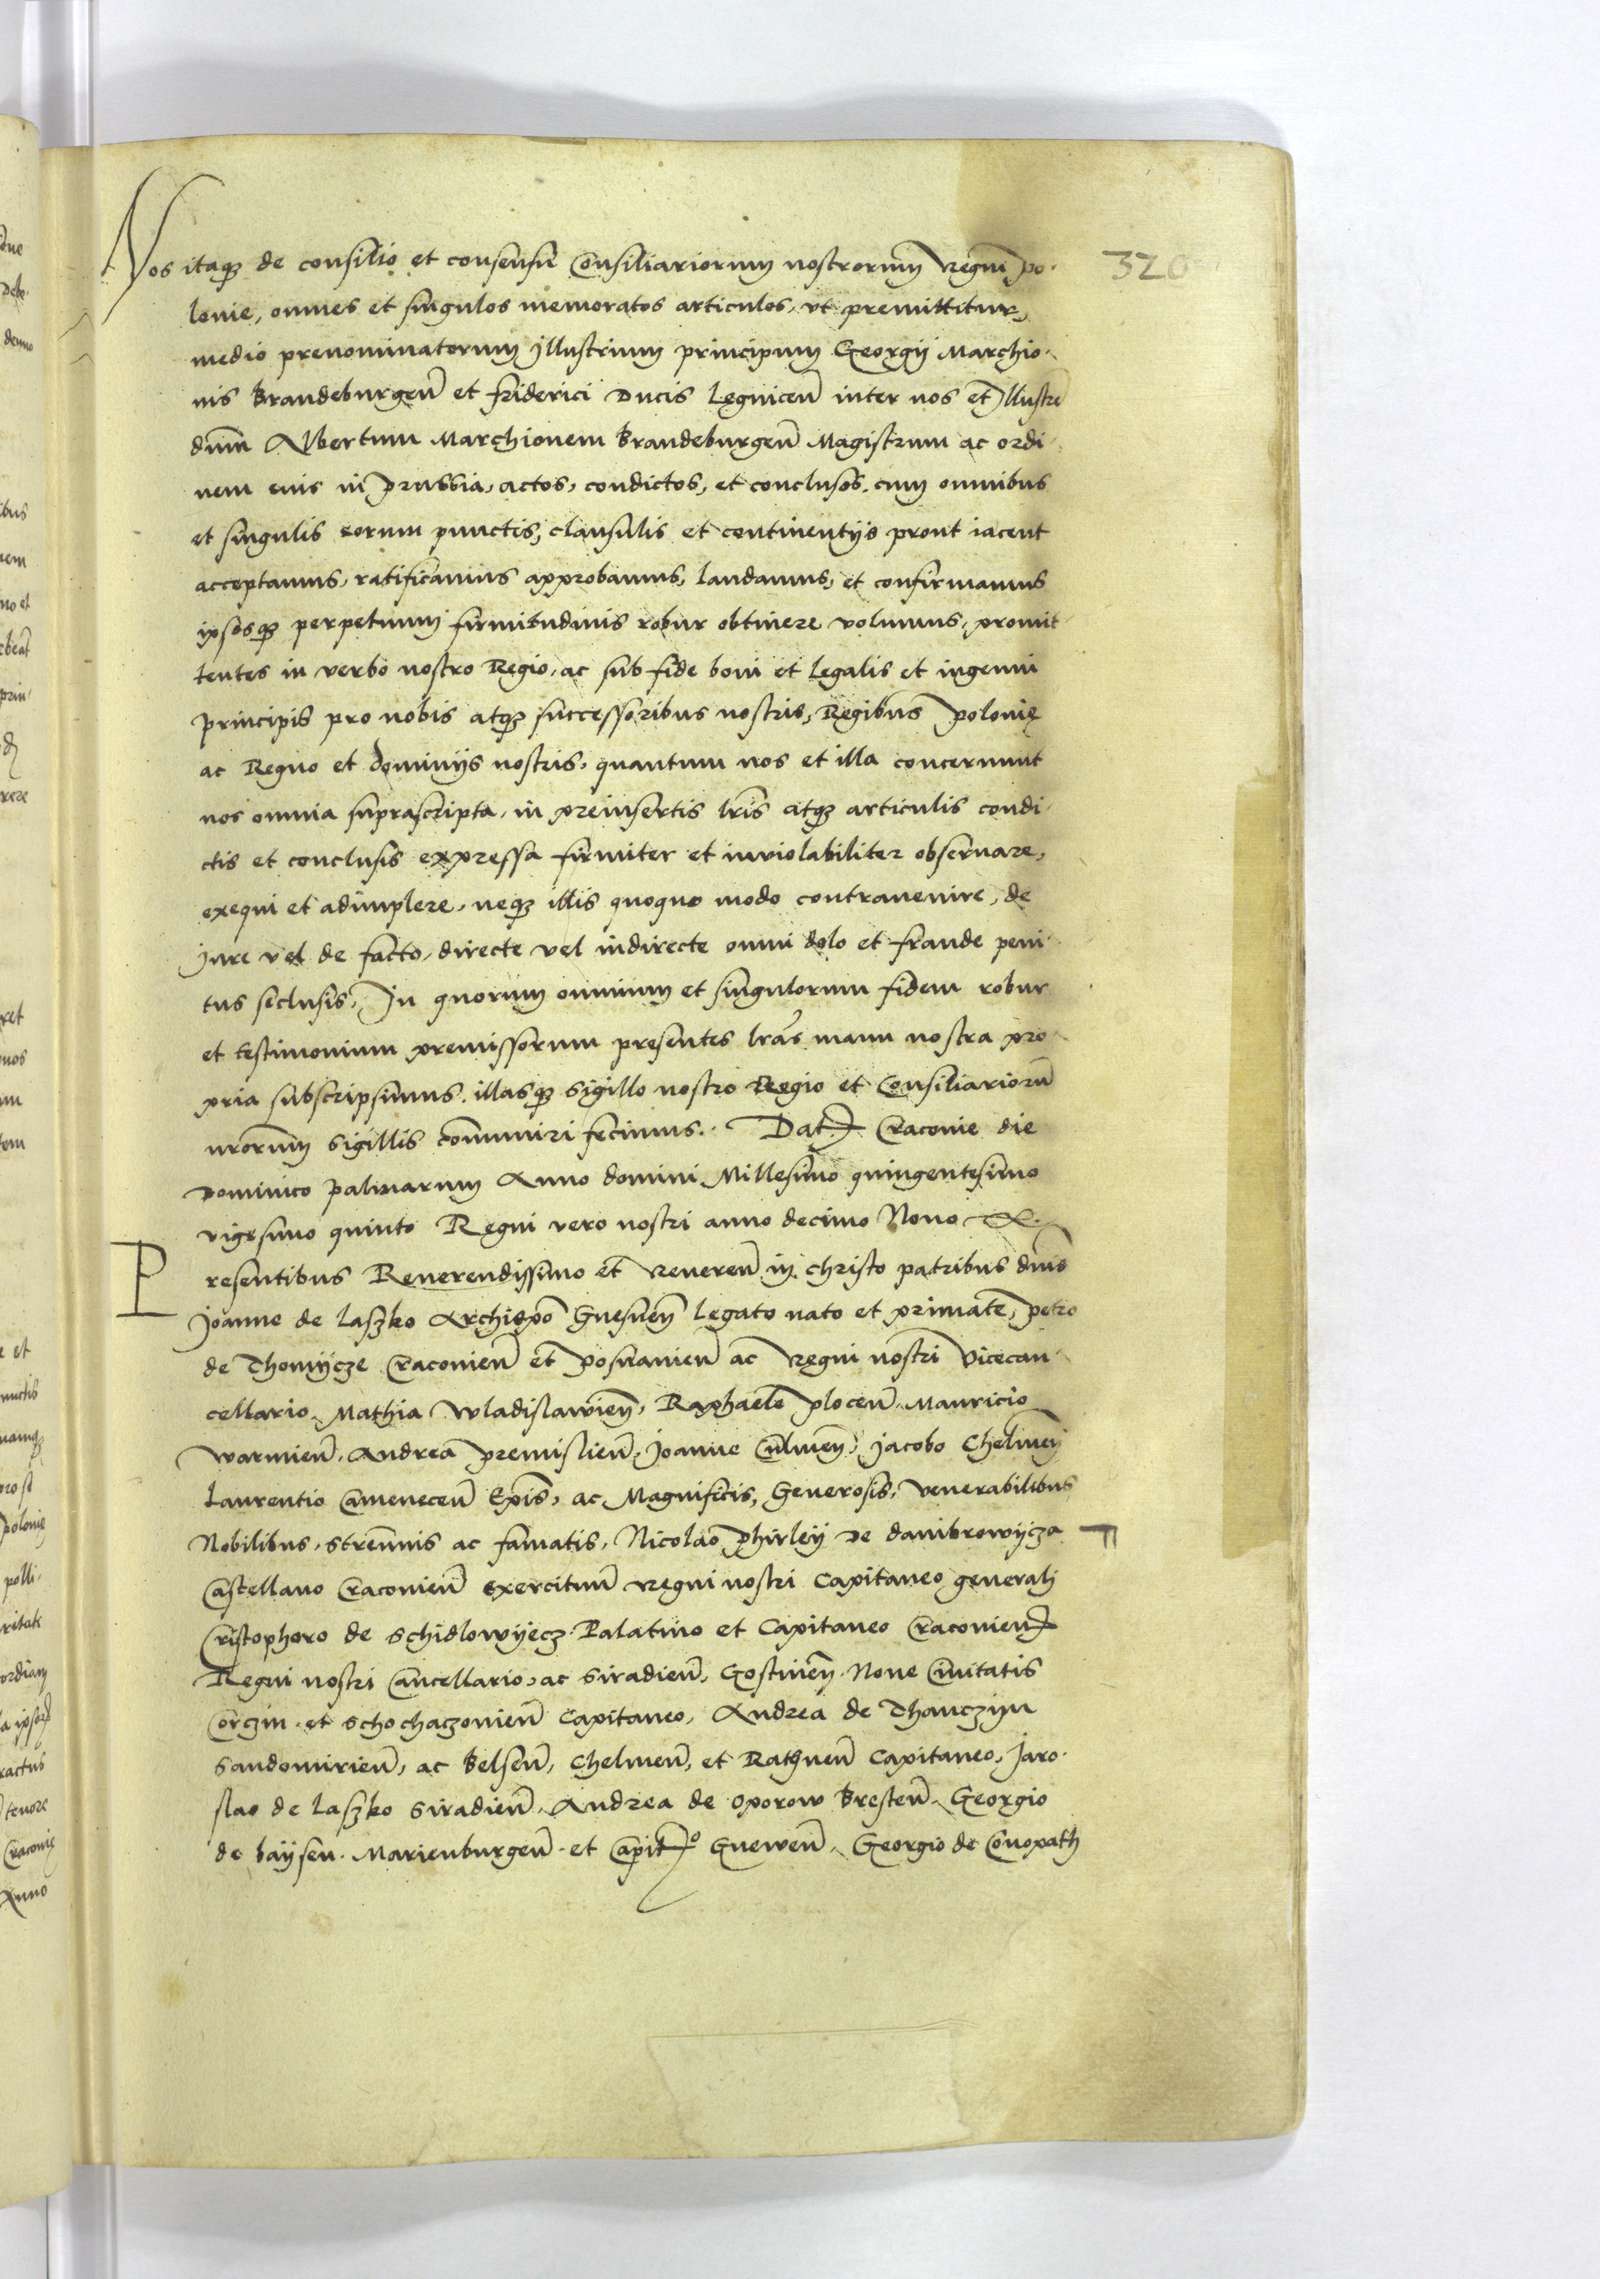 320
Nos itaq3 de consilio et consensu Consiliariorum nostrorum Regni Po-
lonie, omnes et singulos memoratos articulos, ut premittitur,
medio prenominatorum Illustrium principum Georgij Marchio-
nis Brandeburgen̄ et Friderici Ducis Legnicen̄ inter nos et Illustrē
dn̄m Albertum Marchionem Brandeburgen̄ Magistrum ac ordi-
nem eius in Prussia, actos, condictos, et conclusos, cum omnibus
et singulis eorum punctis, clausulis et continentijs prout iacent
acceptamus, ratificamus approbamus, laudamus, et confirmamus
ipsosq3 perpetuum firmitudinis robur obtinere volumus, promit-
tentes in verbo nostro Regio, ac sub fide boni et legalis et ingenui
principis pro nobis atq3 successoribus nostris, Regibus Polonię
ac Regno et dominijs nostris, quantum nos et illa concernunt
nos omnia suprascripta, in preinsertis lr̄is atq3 articulis condi-
ctis et conclusis expressa firmiter et inviolabiliter observare,
exequi et adimplere, neq3 illis quoquo modo contravenire, de
jure vel de facto, directe vel indirecte omni dolo et fraude peni-
tus seclusis, In quorum omnium et singulorum fidem robur
et testimonium premissorum presentes lr̄as manu nostra pro-
pria subscripsimus, illasq3 sigillo nostro Regio et Consiliariorū
nr̄orum sigillis communiri fecimus. Dat̄ Cracovie die
Dominico Palmarum Anno domini Millesimo quingentesimo
vigesimo quinto Regni vero nostri anno decimo Nono
Presentibus Reverendissimo et Reveren̄ in christo patribus dn̄is
Joanne de Laszko Archiepō Gnesnen̄ Legato nato et primate, Petro
de Thomijcze Cracovien̄ et Posnanien̄ ac Regni nostri Vicecan-
cellario, Mathia Wladislavien̄, Raphaele Plocen̄, Mauricio
Warmien̄, Andrea Premislien̄, Joanne Culmen̄, Jacobo Chelmen̄
Laurentio Camenecen̄ Ep̄is, ac Magnificis, Generosis, Venerabilibus
Nobilibus, strennuis ac famatis, Nicolao Phirleij de Dambrowijcza
Castellano Cracovien̄ exercituum Regni nostri Capitaneo generali
Cristophoro de Schidlowijecz Palatino et Capitaneo Cracovien̄
Regni nostri Cancellario, ac Siradien̄, Gostinen̄ Nove Civitatis
Corczin et Schochaczovien̄ Capitaneo, Andrea de Thanczijn
Sandomirien̄, ac Belsen̄, Chelmen̄, et Rathnen̄ Capitaneo, Jaro-
slao de Laszko Siradien̄, Andrea de Oporow Bresten̄, Georgio
de Baijsen Marienburgen̄ et Capit̄o Gnewen̄, Georgio de Conopath